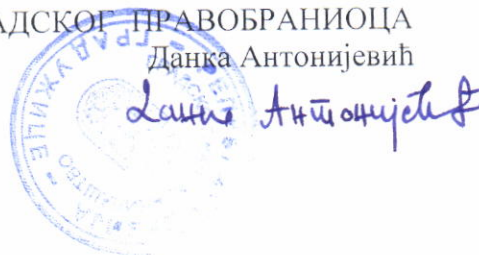 АДСКОГ ПРАВОБРАНИОЦА
Данка Антонијевић
Данка Антонијевић
ГРАД УЖИЦЕ